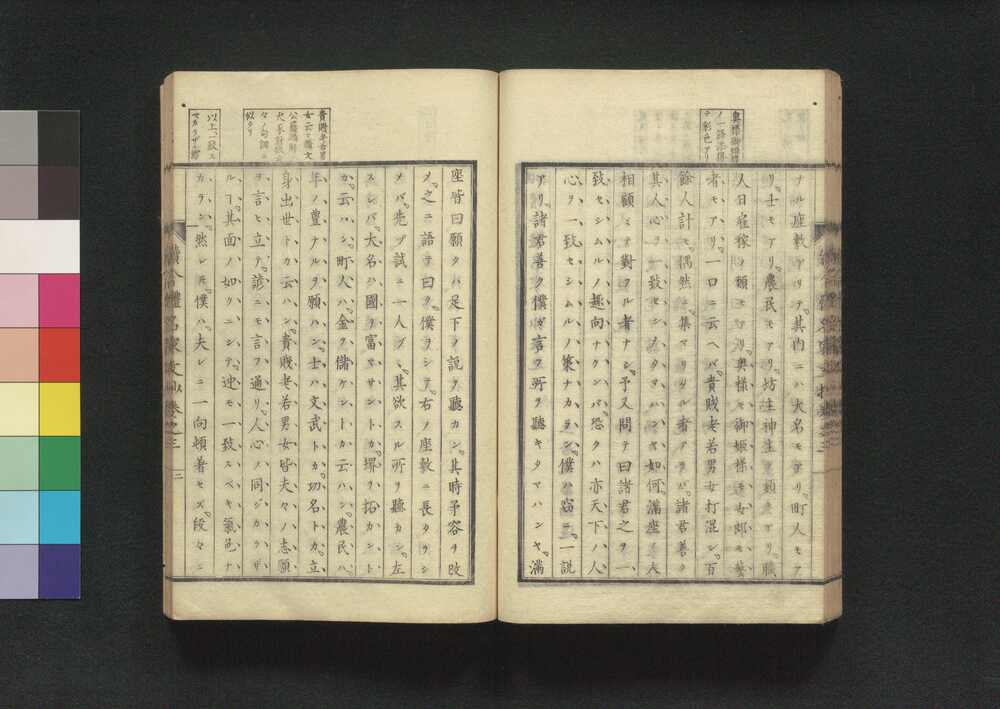 奥様御姫様
ノ一語添得
テ彩色アリ
ナル座敷アリテ其内ニハ大名モアリ町人モア
リ士モアリ農民モアリ坊主神主ノ類モアリ職
人日雇稼ノ類モアリ奥様モ御姫様モ女郎モ藝
者モアリ一口ニ云ヘバ貴賤老若男女打混シ百
餘人計モ偶然ニ集マリタル者アラバ諸君善ク
其人心ヲ一致セシメタマハンヤ如何滿座ノ人
相顧ミテ對フル者ナシ予又問テ曰諸君之ヲ一
致セシムルノ趣向ナクンバ恐クハ亦天下ノ人
心ヲ一致セシムルノ策ナカラン僕ハ窃ニ一説
アリ諸君善ク僕ガ言フ所ヲ聽キタマハンヤ滿
貴賤老若男
女云々
以上一致ス
座皆曰願クハ足下ノ説ヲ聽カン其時予容ヲ改
メ之ニ語テ曰ク僕ヲシテ右ノ座敷ニ長タラシ
メバ先ヅ試ニ一人ヅヽ其欲スル所ヲ聽カン左
スレバ大名ハ國ヲ富マサントカ堺ヲ拓カント
カ云ハン町人ハ金ヲ儲ケントカ云ハン農民ハ
年ノ豊ナルヲ願ハン士ハ文武トカ功名トカ立
身出世トカ云ハン貴賤老若男女皆夫々ノ志願
ヲ言ヒ立テ諺ニモ言フ通リ人心ノ同ジカラザ
ルヿ其面ノ如クニシテ迚モ一致スベキ氣色ナ
カラン然レモ僕ハ夫レニ一向頓着セズ段々ニ
續今體名家文抄卷之三
三